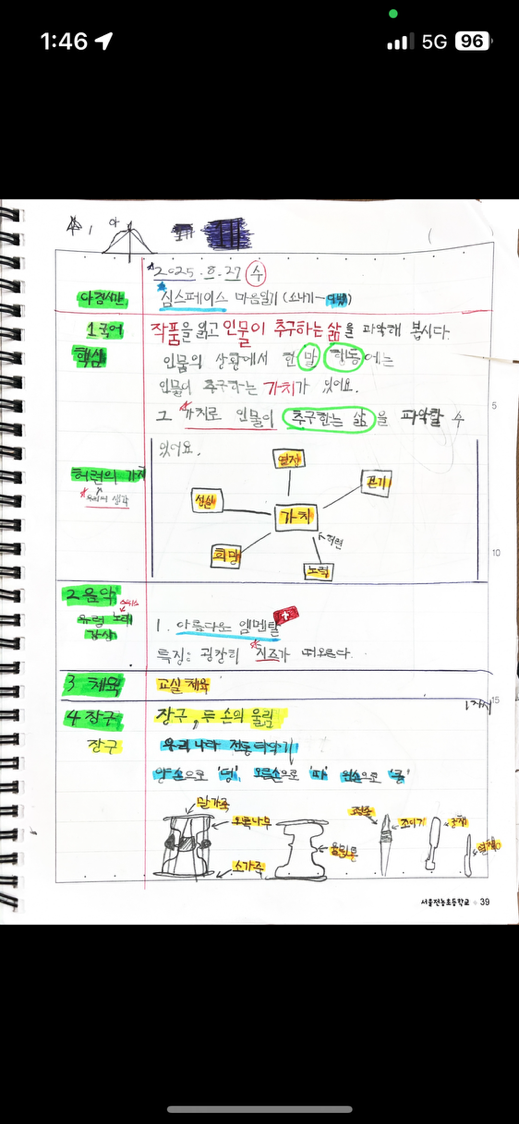 1:46
5G 96
2025. 8. 27 수
아침시간
심스페이스 마음일기 (소나기-
1 국어
작품을 읽고 인물이 추구하는 삶을 파악해 봅시다.
핵심
인물의 상황에서 한 말 행동에는
인물이 추구하는 가치가 있어요.
5
그 가치로 인물이 추구하는 삶을 파악할 수
있어요.
허련의 가치
생각
열정
끈기
가치
허련
희망
노력
10
2 음악
스위스
유럽 노래
감상
1. 아름다운 엠멘탈
특징: 치즈가 떠오른다.
3 체육
교실 체육
15
4 장구
장구, 두 손의 울림
장구
우리나라 전통 타악기
양손으로 '덩' 오른손으로 '따' 왼손으로 '쿵'
말가죽
오동나무
소가죽
울림통
조임줄
조이개
궁채
열채
서울전농초등학교 39